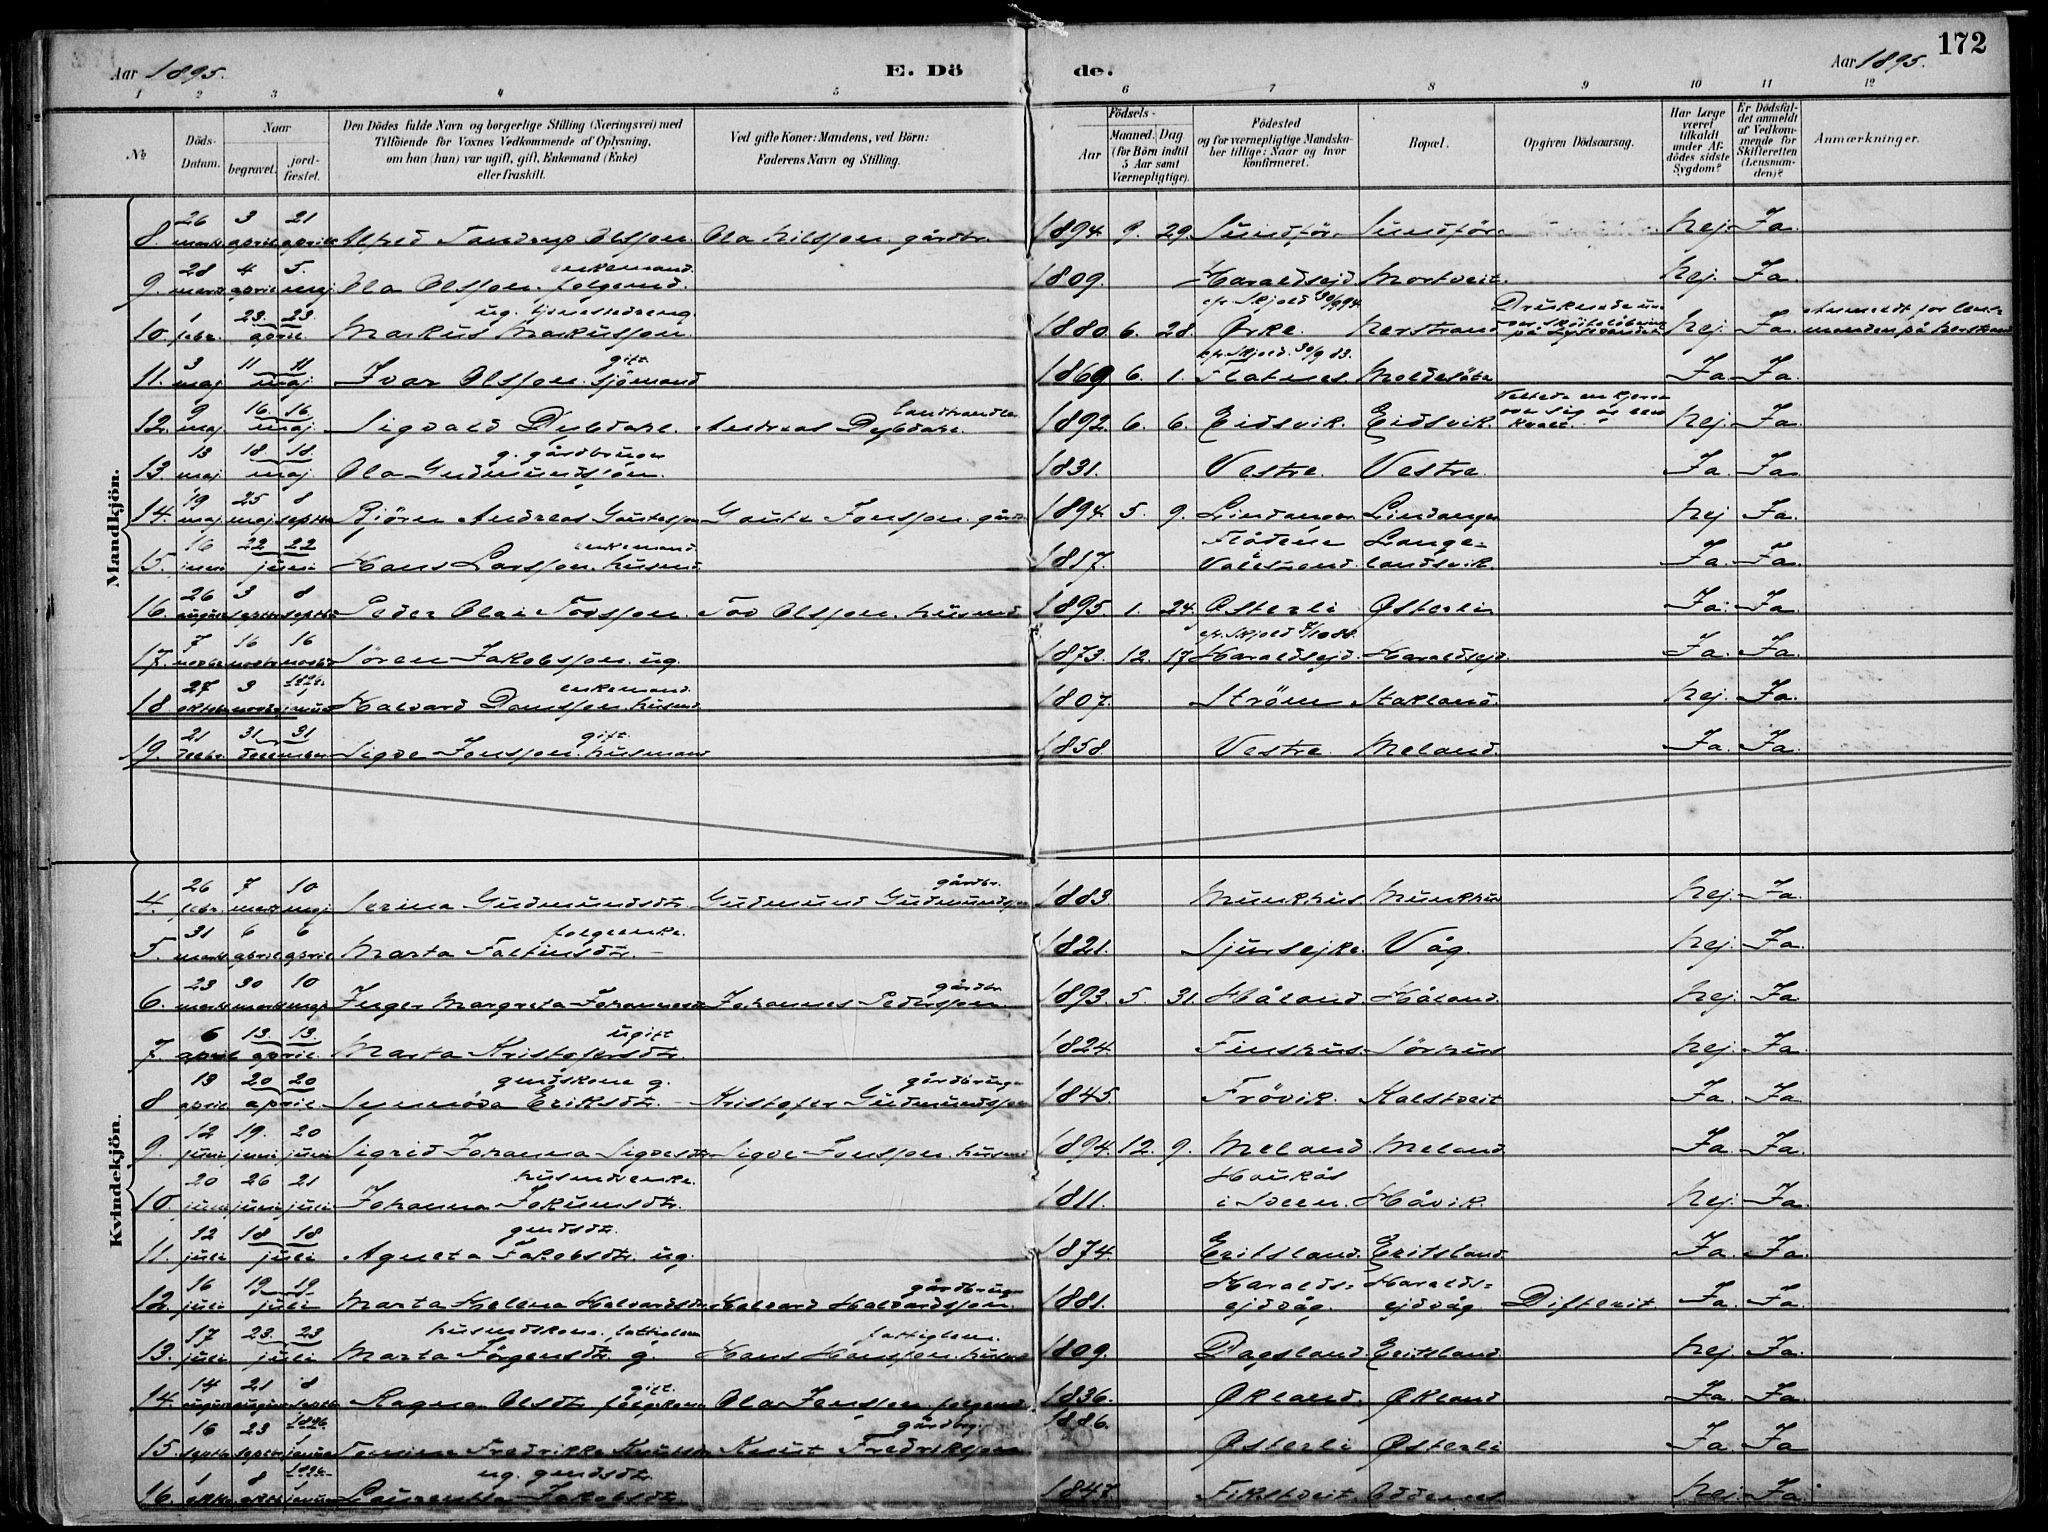 172
Aar 1895. E. Dö de. Aar 1895.
1 2 3 4 5 6 7 8 9 10 11 12
№ Döds-Datum. Naar begravet. jord-fæstet. Den Dödes fulde Navn og borgerlige Stilling (Næringsvei) med Tilföiende for Voxnes Vedkommende af Oplysning, om han (hun) var ugift, gift, Enkemand (Enke) eller fraskilt. Ved gifte Koner: Mandens, ved Börn: Faderens Navn og Stilling. Födsels- Aar Maaned. Dag (for Börn indtil 5 Aar samt Værnepligtige). Födested og for værnepligtige Mandskaber tillige: Naar og hvor konfirmeret. Bopæl. Opgiven Dödsaarsag. Har Læge været tilkaldt under Afdödes sidste Sygdom? Er Dödsfaldet anmeldt af Vedkommende for Skifteretten (Lensmanden)? Anmærkninger.
Mandkjön.
8. 26 marts 3 april 21 april Alfred Olsson. Ola Nilsson. gårdbr. 1894. 9. 29. Sundför. Sundför. Nej. Ja.
9. 28 marts 4 april 5. maj Ola Olsson. enkemand. folgemd. 1809. Haraldsejd. Mortveit. Nej. Ja.
10. 1 febr. 23. 23. april Markus Markusson. ug. tjenestedreng 1880. 6. 28. Ørke. Nerstrand Nej. Ja. Anmeldt for lensmanden på Nerstrand
11. 3 maj 11 11 maj. Ivar Olsson. gift. sjömand 1869 6. 1. Flatnes. Ja. Ja.
12. 9 maj 16. 16. maj. Sigvald Dybdahl. Andreas Dybdahl. landhandler 1892. 6. 6. Eidsvik. Eidsvik. Nej. Ja.
13. 13 maj. 18 18. maj. Ola Gudmundsson. g. gårdbruger 1831. Vestre. Vestre. Ja. Ja.
14. 19 maj 25 maj 8 septbr Björn Andreas Gautesson Gaute Jonsson. gårdb 1894. 5. 9. Lindanger. Lindanger Nej Ja.
15. 16 juni 22 22 juni Hans Larsson. enkemand. husmd. 1817. Langelandsvik. Ja. Ja.
16. 26 august 3 septbr 8 septbr Peder Olai Torsson. Tor Olsson. husmd 1895. 1. 24. Østerli Østerli Ja. Ja.
17. 7 novbr. 16 novbr 16 novbr Sören Jakobsson. ug. 1873. 12. 17. Haraldsejd. Haraldsejd Ja. Ja.
18. 27 oktbr. 3 novbr 1896. januar Halvard Danesson. enkemand. husmd 1807. Ström Stakland. Nej. Ja.
19. 21 decbr. 31 31 december Sigve Jonsson. gift. husmand 1858. Vestre. Meland. Ja. Ja.
Kvindekjön.
4. 26 febr. 7 marts 10 maj Serina Gudmundsdtr. Gudmund Gudmundsson gårdbr. 1883. Munkhus Munkhus Nej. Ja.
5. 31 marts 6 april 6 april Marta Faltinsdtr. folgeenke. 1821. Sjursejke. Våg. Nej. Ja.
6. 23 marts 30 marts 10 maj Inger Margreta Johannesd Johannes Pedersson gårdbr 1893. 5. 31. Håland. Håland. Nej. Ja
7. 6 april 13. 13. april. Marta Kristofersdtr. ugift 1824. Finshus. Sörhus Nej. Ja.
8 13 april. 20 20 april. Synnöva Eriksdtr. gmdskone g. Kristofer Gudmundsson gårdbruger 1845. Frövik. Kalstveit Ja. Ja
9. 12 juni 19. juni 20 juni Sigrid Johanna Sigvesdtr Sigve Jonsson. husmd 1894. 12. 9. Meland. Meland. Ja. Ja.
10. 20 juni 26 juni 21 juli Johanna Jokumsdtr. husmdsenke. 1811. Haukås i Sveen. Håvik. Nej. Ja.
11. 12 juli 18 18 juli Agneta Jakobsdtr. ug. gmdsdtr. 1874. Eritsland. Eritsland. Ja. Ja.
12. 16 juli 19 19 juli Marta Helena Halvardsdtr Halvard Halvardsson. gårdbruger 1881. Haraldsejdvåg. Haraldsejdvåg Difterit. Ja. Ja.
13. 17 juli 23. 23 juli Marta Jörgensdtr. g. husmdskone. fattiglem Hans Hansson. husmd fattiglem. 1809. Dagsland. Eritsland. Nej. Ja.
14. 14 august 21 august 8 septb Ragna Olsdtr. gift. folgekone Ola Jensson folgemd. 1836. Økland. Økland Ja. Ja.
15. 16 septbr 23 septbr 1896 januar Fredrikke Knutsdtr Knut Fredriksson gårdbrg. 1886. Østerli Østerli Ja. Ja
16. 1 oktbr 8 oktbr 1896 januar Laurentsa Jakobsdtr. ug. gmdsdtr. 1847. Fikstveit. Oddenes Nej. Ja.